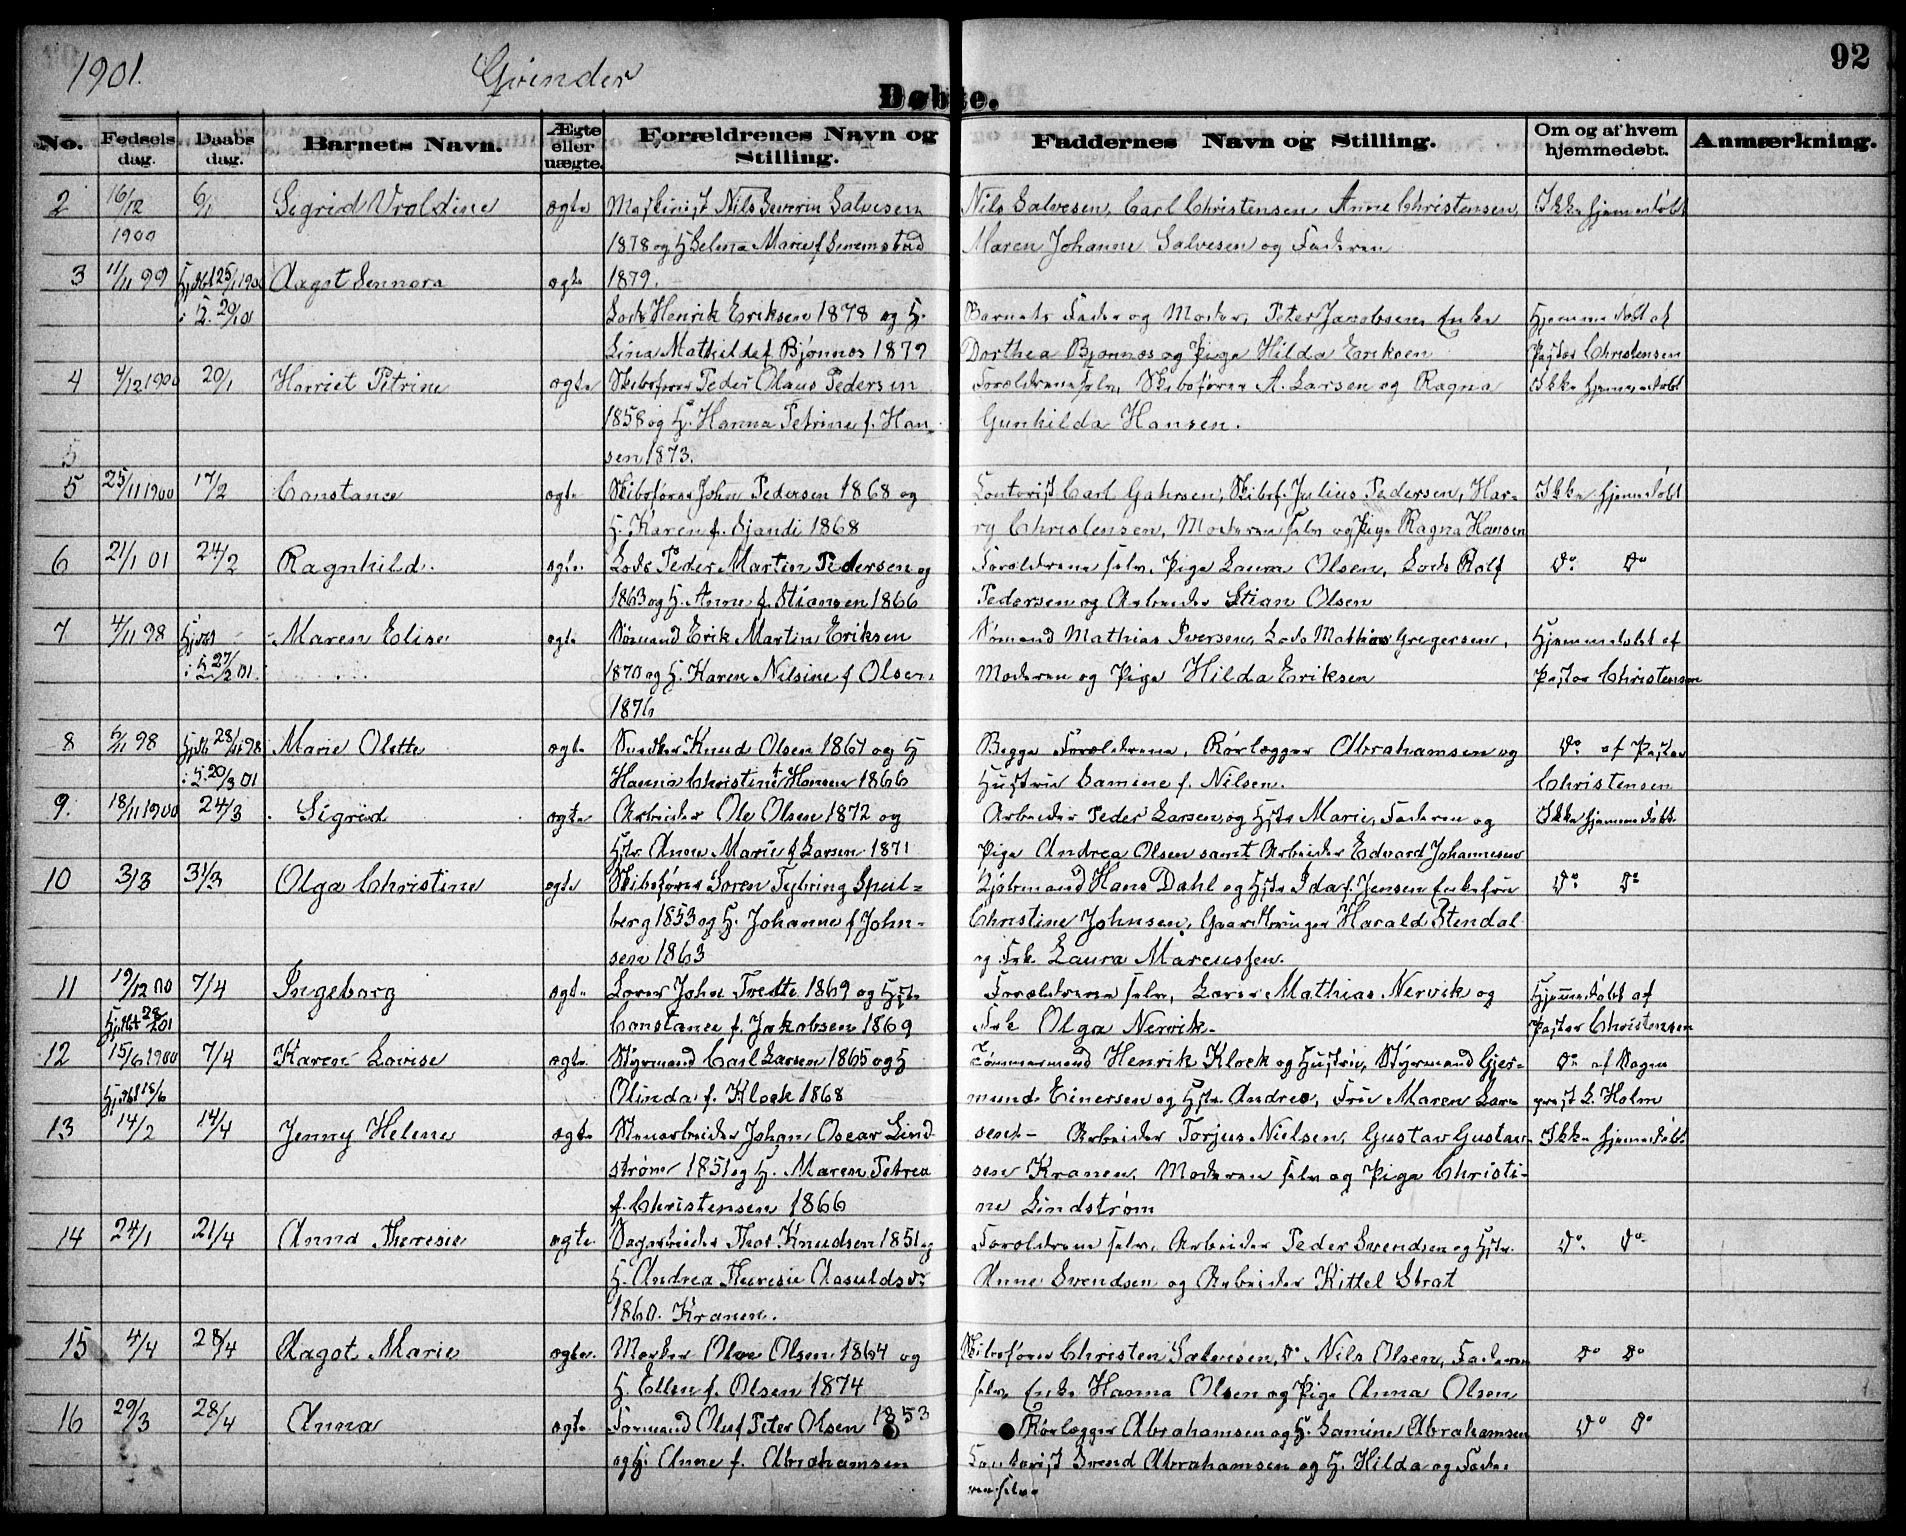 1901. Qvinder 92
Døbte.
No. Fødselsdag. Daabsdag. Barnets Navn. Ægte eller uægte. Forældrenes Navn og Stilling. Faddernes Navn og Stilling. Om og af hvem hjemmedøbt. Anmærkning.
2 16/12 6/1 Sigrid Valdine ægte Maskinist Nils Severin Salvesen Nils Salvesen, Carl Christensen Anne Christensen, Ikke hjemmedøbt
1900 1878 og H Selma Marie f. 
Maren Johanne Salvesen og Faderen
3 11/11 99 25/1 1900 Aagot Sennora ægte 1879.
i K. 20/1 01 Lods Henrik Eriksen 1878 og H. Barnets Fader og Moder, Peter Jacobsen, Enke Hjemmedøbt af
Lina Mathilde f. Bjønnes 1879 Dorthea Bjønnes og Pige Hilda Eriksen Pastor Christensen
4 4/12 1900 20/1 Harriet Petrine ægte Skibsfører Peder Olaus Pedersen Forældrene selv, Skibsfører A. Larsen og Ragna Ikke hjemmedøbt
1858 og H. Hanna Petrine f. Han- Gunhilda Hansen.
5 sen 1873.
5 25/11 1900 17/2 Constance ægte Skibsfører John Pedersen 1868 og Contorist Carl Gahrsen, Skibsf. Julius Pedersen, Har- Ikke hjemmedøbt
H. Karen f. Sjandi 1868 ry Christensen, Moderen selv og Pige Ragna Hansen
6 21/1 01 24/2 Ragnhild ægte Lods Peder Martin Pedersen og Forældrene selv, Pige Laura Olsen, Lods Rolf Do Do
1863 og H. Anne f. Stiansen 1866 Pedersen og Arbeider Stian Olsen
7 4/11 98 Maren Elise ægte Sømand Erik Martin Eriksen Sømand Mathias Iversen, Lods Mathias Gregersen, Hjemmedøbt af
i K 27/2 01. 1870 og H. Karen Nilsine f Olsen Moderen og Pige Hilda Eriksen Pastor Christensen
1876
8 5/11 98 28/11 98 Marie Olette ægte Snedker Knud Olsen 1867 og H Begge Forældrene, Rørlægger Abrahamsen og Do af Pastor
i K 20/3 01 Hanna Christine f Hansen 1866 Hustru Samine f. Nilsen. Christensen
9. 18/11 1900 24/3 Sigrid ægte Arbeider Ole Olsen 1872 og Arbeider Peder Larsen og Hstr Marie, Faderen og Ikke hjemmedøbt
Hstr. Anne Marie f Larsen 1871 Pige Andrea Olsen samt Arbeider Edvard Johannesen
10 3/3 31/3 Olga Christine ægte Skibsfører Soren Tybring Spul- Hjulmand Hans Dahl og Hstr Ida f. Jensen Enkefru Do Do
berg 1853 og H. Johanne f John- Christine Johnsen, Gaardbruger Harald Stendal
sen 1863 og Frk. Laura Marcussen.
11 19/12 00 7/4 Ingeborg ægte Lærer John Tredte 1869 og Hstr. Forældrene selv, Lærer Mathias Nervik og Hjemmedøbt af
Constance f. Jakobsen 1869 Frk Olga Nervik. Pastor Christensen
12 15/6 1900 7/4 Karen Lovise ægte Styrmand Carl Larsen 1865 og H Tømmermand Henrik Klock og Hustru, Styrmand Gjer- Do af Sogne
18/6 Olinda f. Klock 1868 mund Einersen og Hstr Andrea, Fru Maren Lar- prest L. Holm
13 14/2 14/4 Jenny Helene ægte Stenarbeider Johan Oscar Lind sen - Arbeider Torjus Nielsen, Gustav Gustav- Ikke hjemmedøbt
strøm 1851 og H. Maren Petrea sen Kranen, Moderen selv og Pige Christi-
f. Christensen 1866 ne Lindstrøm
14 24/1 21/4 Anna Theresie ægte Thor Knudsen 1851 og Forældrene selv, Arbeider Peder Svendsen og Hstr. Do Do
H. Andrea Theresie Aasulds Anne Svendsen og Arbeider Kittel Strat
1860. Kranen.
15 4/4 28/4 Aagot Marie ægte Olsen 1864 og Skibsfører Christen Salvesen, Do Nils Olsen, Faderen Do Do
H. Ellen f. Olsen 1874 selv, Enke Hanna Olsen og Pige Anna Olsen
16 29/3 28/4 Anna ægte Formand Oluf Peter Olsen 1853 Rørlægger Abrahamsen og H. Samine Abrahamsen Do Do
og H. Anne f. Abrahamsen Contorist Svend Abrahamsen og H. Hilda og Fade-
ren selv